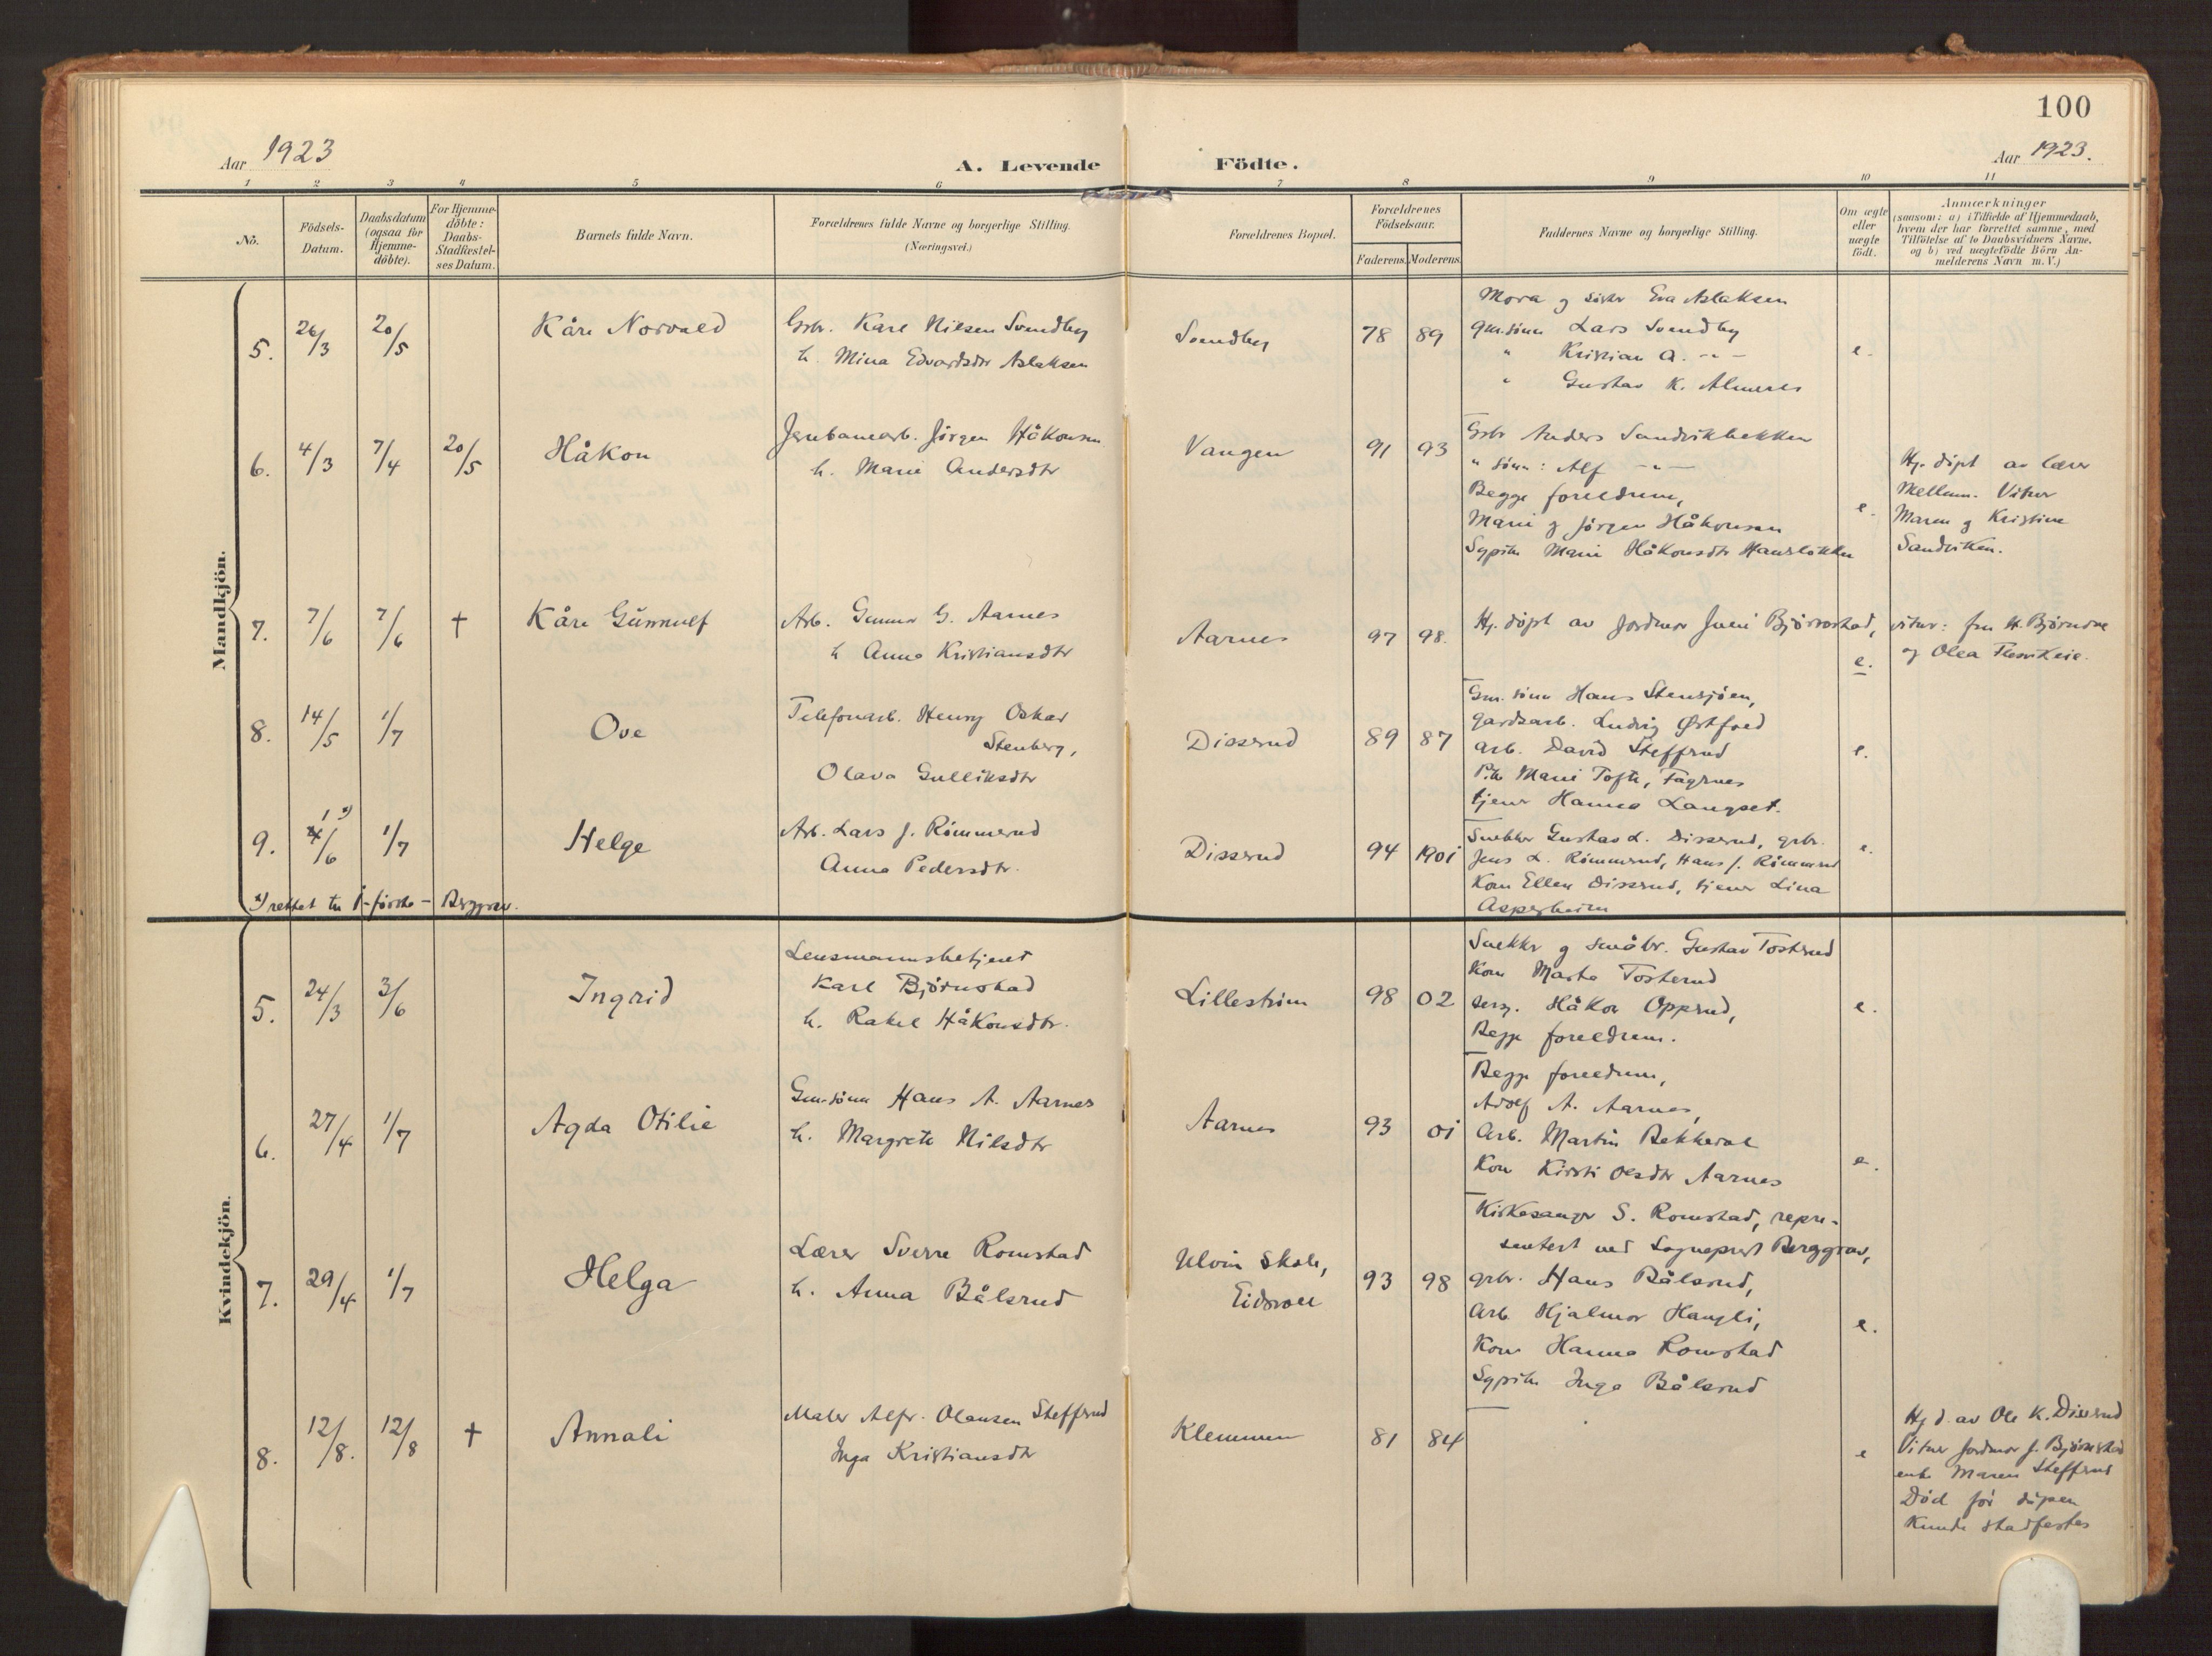 100
Aar 1923
A. Levende Födte.
Aar 1923.
1 2 3 4 5 6 7 8 9 10 11
No.
Födsels-Datum.
Daabsdatum (ogsaa for Hjemme-döbte).
For Hjemme-döbte: Daabs-Stadfæstel-ses Datum.
Barnets fulde Navn.
Forældrenes fulde Navne og borgerlige Stilling.
(Næringsvei.)
Forældrenes Bopæl.
Forældrenes Födselsaar.
Faderens. Moderens.
Faddernes Navne og borgerlige Stilling.
Om ægte eller uægte födt.
Anmærkninger
(saasom: a) i Tilfælde af Hjemmedaab,
hvem der har forrettet samme, med
Tilföielse af to Daabsvidners Navne.
og b) ved uægtefödte Börn An-
melderens Navn m. V.)
Mandkjön.
5. 26/3 20/5 Kåre Norvald
Gbr. Karl Nilsen Svendby
h. Mina Edvardsdtr Aslaksen
Svendby 78 89
Mora og søster Eva Aslaksen
gm.sønn Lars Svendby
" Kristian A. - " -
" Gustav K. Almerås
e.
6. 4/3 7/4 20/5 Håkon
Jernbanearb. Jørgen Håkonsen
h. Marie Andersdtr
Vangen 91 93
Gbr Anders Sandvikbekken
" sønn: Alf - " -
Begge foreldrene,
Marie og Jørgen Håkonsen
Sypike Marie Håkonsdtr Hansløkken
e.
Hj. døpt av lærer
Mellum. Vitner
Maren og Kristine
Sandviken.
7. 7/6 7/6 † Kåre Gunnulf
Arb. Gunnar G. Aarnes
h Anna Kristiansdtr
Aarnes 97 98.
Hj. døpt av Jordmor Juni Bjørnstad, vitner: fru H. Bjørndal
og Olea
e.
8. 14/5 1/7 Ove
Telefonarb. Henry Oskar
Stenberg,
Olava Gulliksdtr
Disserud 89 87
Gm. sønn Hans Stensjøen,
gardsarb. Ludvig Østfold
arb. David Steffrud
Pike Marie Tofte, Fagernes
tjener Hanna Langset.
e.
9. 1 x) 4/6 1/7 Helge
Arb. Lars J. Rømmerud
Anna Pedersdtr.
Disserud 94 1901
Snekker Gustav L. Disserud, gbr.
Jens L. Rømmerud, Hans J. Rømmerud
Kone Ellen Disserud, tjener Lina
Asperheim
e.
x) rettet til 1 - første - Berggrav.
Kvindekjön.
5. 24/3 3/6 Ingrid
Lensmannsbetjent
Karl Bjørnstad
h. Rakel Håkonsdtr.
Lillestrøm 98 02
Snekker og småbr. Gustav Tosterud
Kone Marta Tosterud
serg. Håkon Opperud,
Begge foreldrene.
e.
6. 27/4 1/7 Agda Otilie
Gm.sønn Hans A. Aarnes
h. Margrete Nilsdtr
Aarnes 93 01
Begge foreldrene,
Adolf A. Aarnes,
Arb. Martin Bekkevol
Kone Kirsti Olsdtr Aarnes
e.
7. 29/4 1/7 Helga
Lærer Sverre Romstad
h. Anna Bålsrud
Ulvin skole,
Eidsvoll
93 98
Kirkesanger S. Romstad, repre-
sentert ved Sogneprest Berggrav,
gbr. Hans Bålsrud,
Arb Hjalmar Haugli,
Kone Hanna Romstad
Sypike Inga Bålsrud
e.
8. 12/8. 12/8 † Annali
Maler Alfr. Olausen Steffrud
Inga Kristiansdtr
Klemmen 81 84
e
Hj d. av Ole K. Disserud
Vitner Jordmor J. Bjørnstad
enke Maren Steffrud
Död før dåpen
kunde stadfestes